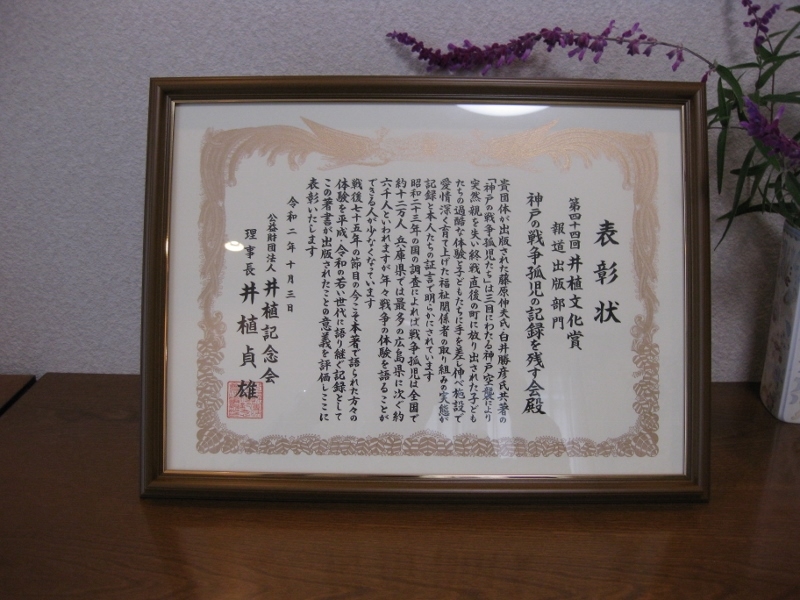 表彰状
第四十四回 井植文化賞
報道出版部門
神戸の戦争孤児の記録を残す会殿
貴団体が出版された藤原伸夫氏・白井勝彦氏共著の
「神戸の戦争孤児たち」は三回にわたる神戸空襲により
突然親を失い終戦直後の町に放り出された子ども
たちの過酷な体験と子どもたちに手を差し伸べ施設で
愛情深く育て上げた福祉関係者の取り組みの実態が
記録と本人たちの証言で明らかにされています
昭和二十三年の国の調査によれば戦争孤児は全国で
約十二万人 兵庫県では最多の広島県に次ぐ約
六千人といわれますが年々戦争の体験を語ることが
できる人が少なくなっています
戦後七十五年の節目の今こそ本著で語られた方々の
体験を平成・令和の若い世代に語り継ぐ記録として
この著書が出版されたことの意義を評価しここに
表彰いたします
令和二年十月三日
公益財団法人 井植記念会
理事長 井植貞雄